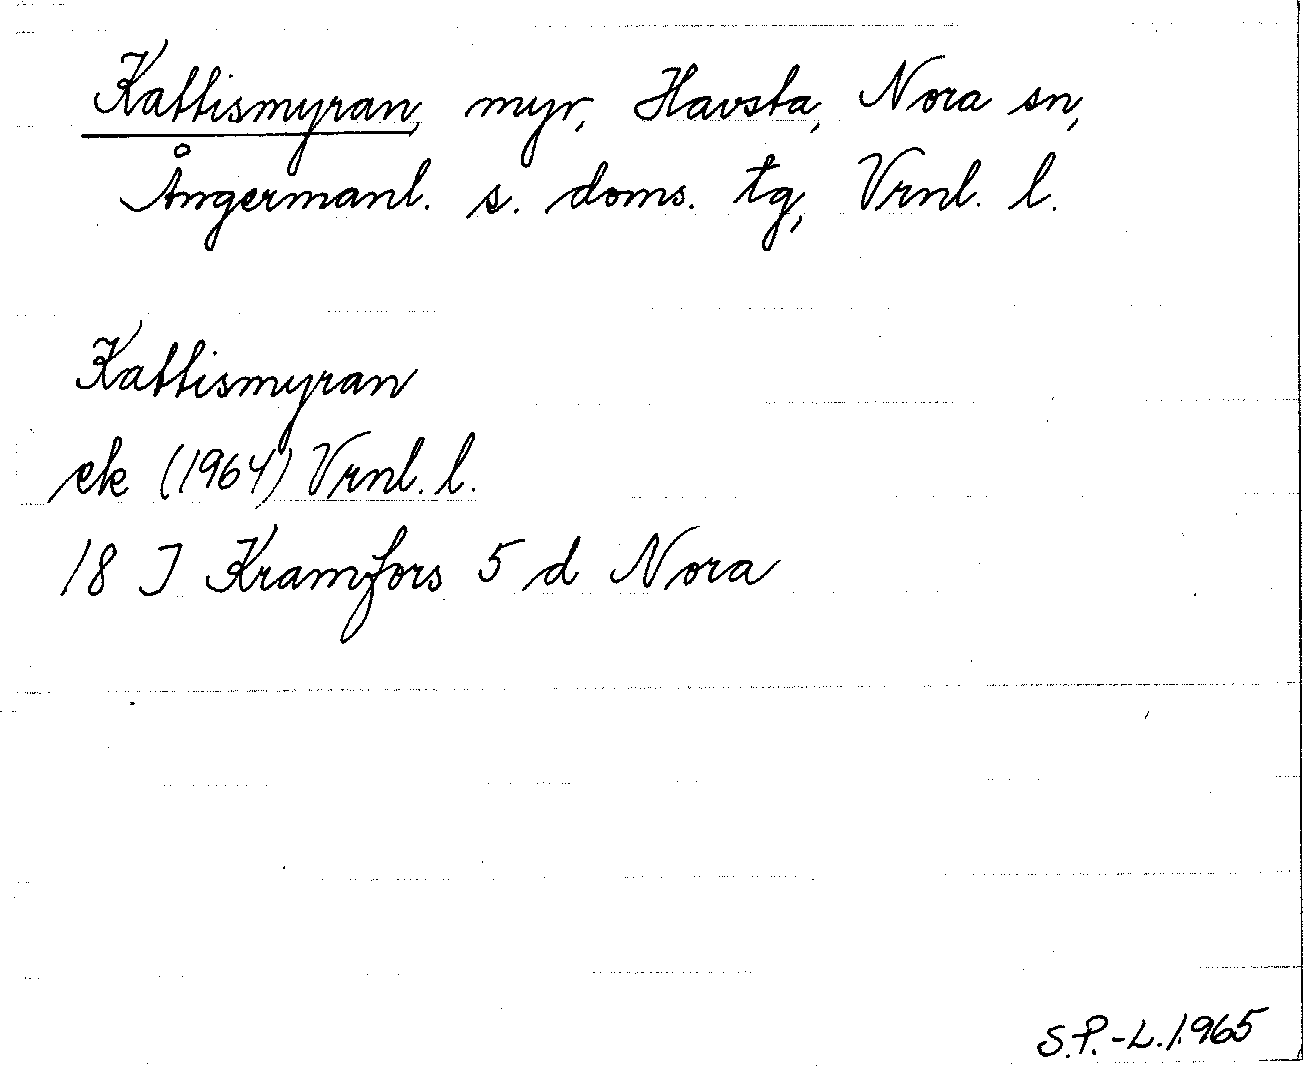 Kattismyran, myr, Havsta, Nora sn,
Ångermanl. s. doms. tg, Vrnl. l.
Kattismyran
ek (1964) Vrnl. l.
18 I Kramfors 5 d Nora
S.P.-L. 1965